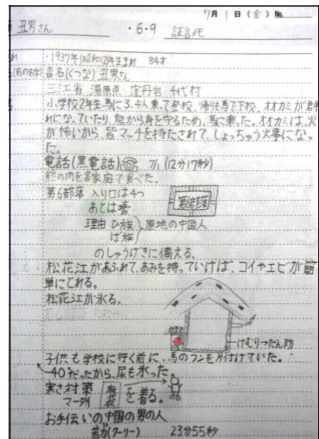 7月1日(金)No.
丑男さん ・6・9 証言化
・1937年(昭和12年)生まれ 84才
沓名(くつな)丑男さん
三江省 湯原県 窪丹台 千代村
小学校2年生馬に3、4人乗って登校、帰りは馬で下校、オオカミが群
れになっていたり、熊から身を守るため、馬に乗った。オオカミは、火
が怖いから、皆マッチを持たされて、しょっちゅう火事になっ
た。
電話(黒電話) 7/1(12分17秒)
熊の肉を各家庭で食べた。
第6部落 入り口は4つ
あとは壕
理由 ひ族 原地の中国人
ば族
のしゅうげきに備える。
松花江があふれて、あみを持っていけば、コイやエビが簡
単にとれる。
松花江が氷る。
けむりつだん防
子供も学校に行く前に、馬のフンを片付けていた。
-40°だったから、尿も氷った
寒さ対策
マータイ 麻袋 を着る。
お手伝いの中国の男の人
苦力(クーリー) 23分55秒